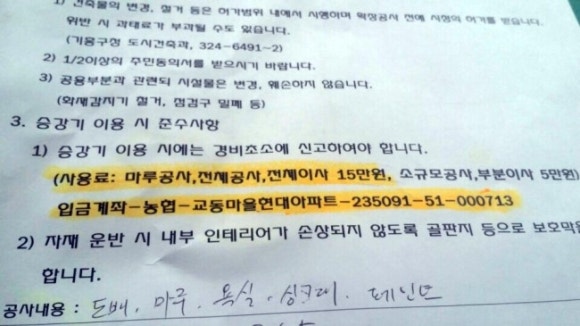 1) 건축물의 변경, 철거 등은 허가범위 내에서 시행하며 확장공사 전에 시청의 허가를 받습니다.
위반 시 과태료가 부과될 수도 있습니다.
(기흥구청 도시건축과, 324-6491~2)
2) 1/2이상의 주민동의서를 받으시기 바랍니다.
3) 공용부분과 관련되 시설물은 변경, 훼손하지 않습니다.
(화재감지기 철거, 점검구 밀폐 등)
3. 승강기 이용 시 준수사항
1) 승강기 이용 시에는 경비초소에 신고하여야 합니다.
(사용료: 마루공사,전체공사,전체이사 15만원, 소규모공사,부분이사 5만원)
입금계좌-농협-교동마을현대아파트-235091-51-000713
2) 자재 운반 시 내부 인테리어가 손상되지 않도록 골판지 등으로 보호막을
합니다.
공사내용 : 도배, 마루, 욕실, 싱크대, 페인트